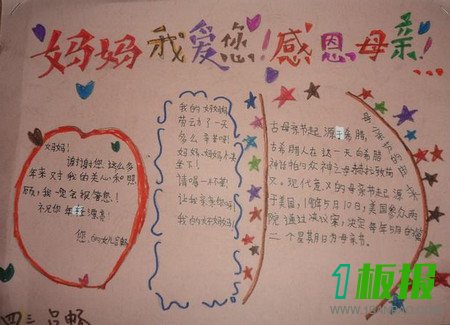 妈妈我爱您!感恩母亲!...
妈妈!
谢谢您这么多
年来对我的关心和照
顾,我一定会报答您!
祝您年轻漂亮!
您的女儿:吕畅
我的好妈妈
劳动了一天
多么辛苦呀!
妈妈妈妈快来
坐下!
请喝一杯茶!
让我亲亲你吧
我的好妈妈!
古母亲节起源于希腊,
古希腊人在这一天向希腊
神话的众神之母赫拉致敬
意,现代意义的母亲节起源
于美国,1914年5月10日,美国参众两
院通过决议案,决定每年5月的第
二个星期日为母亲节。
四三 吕畅
1板报